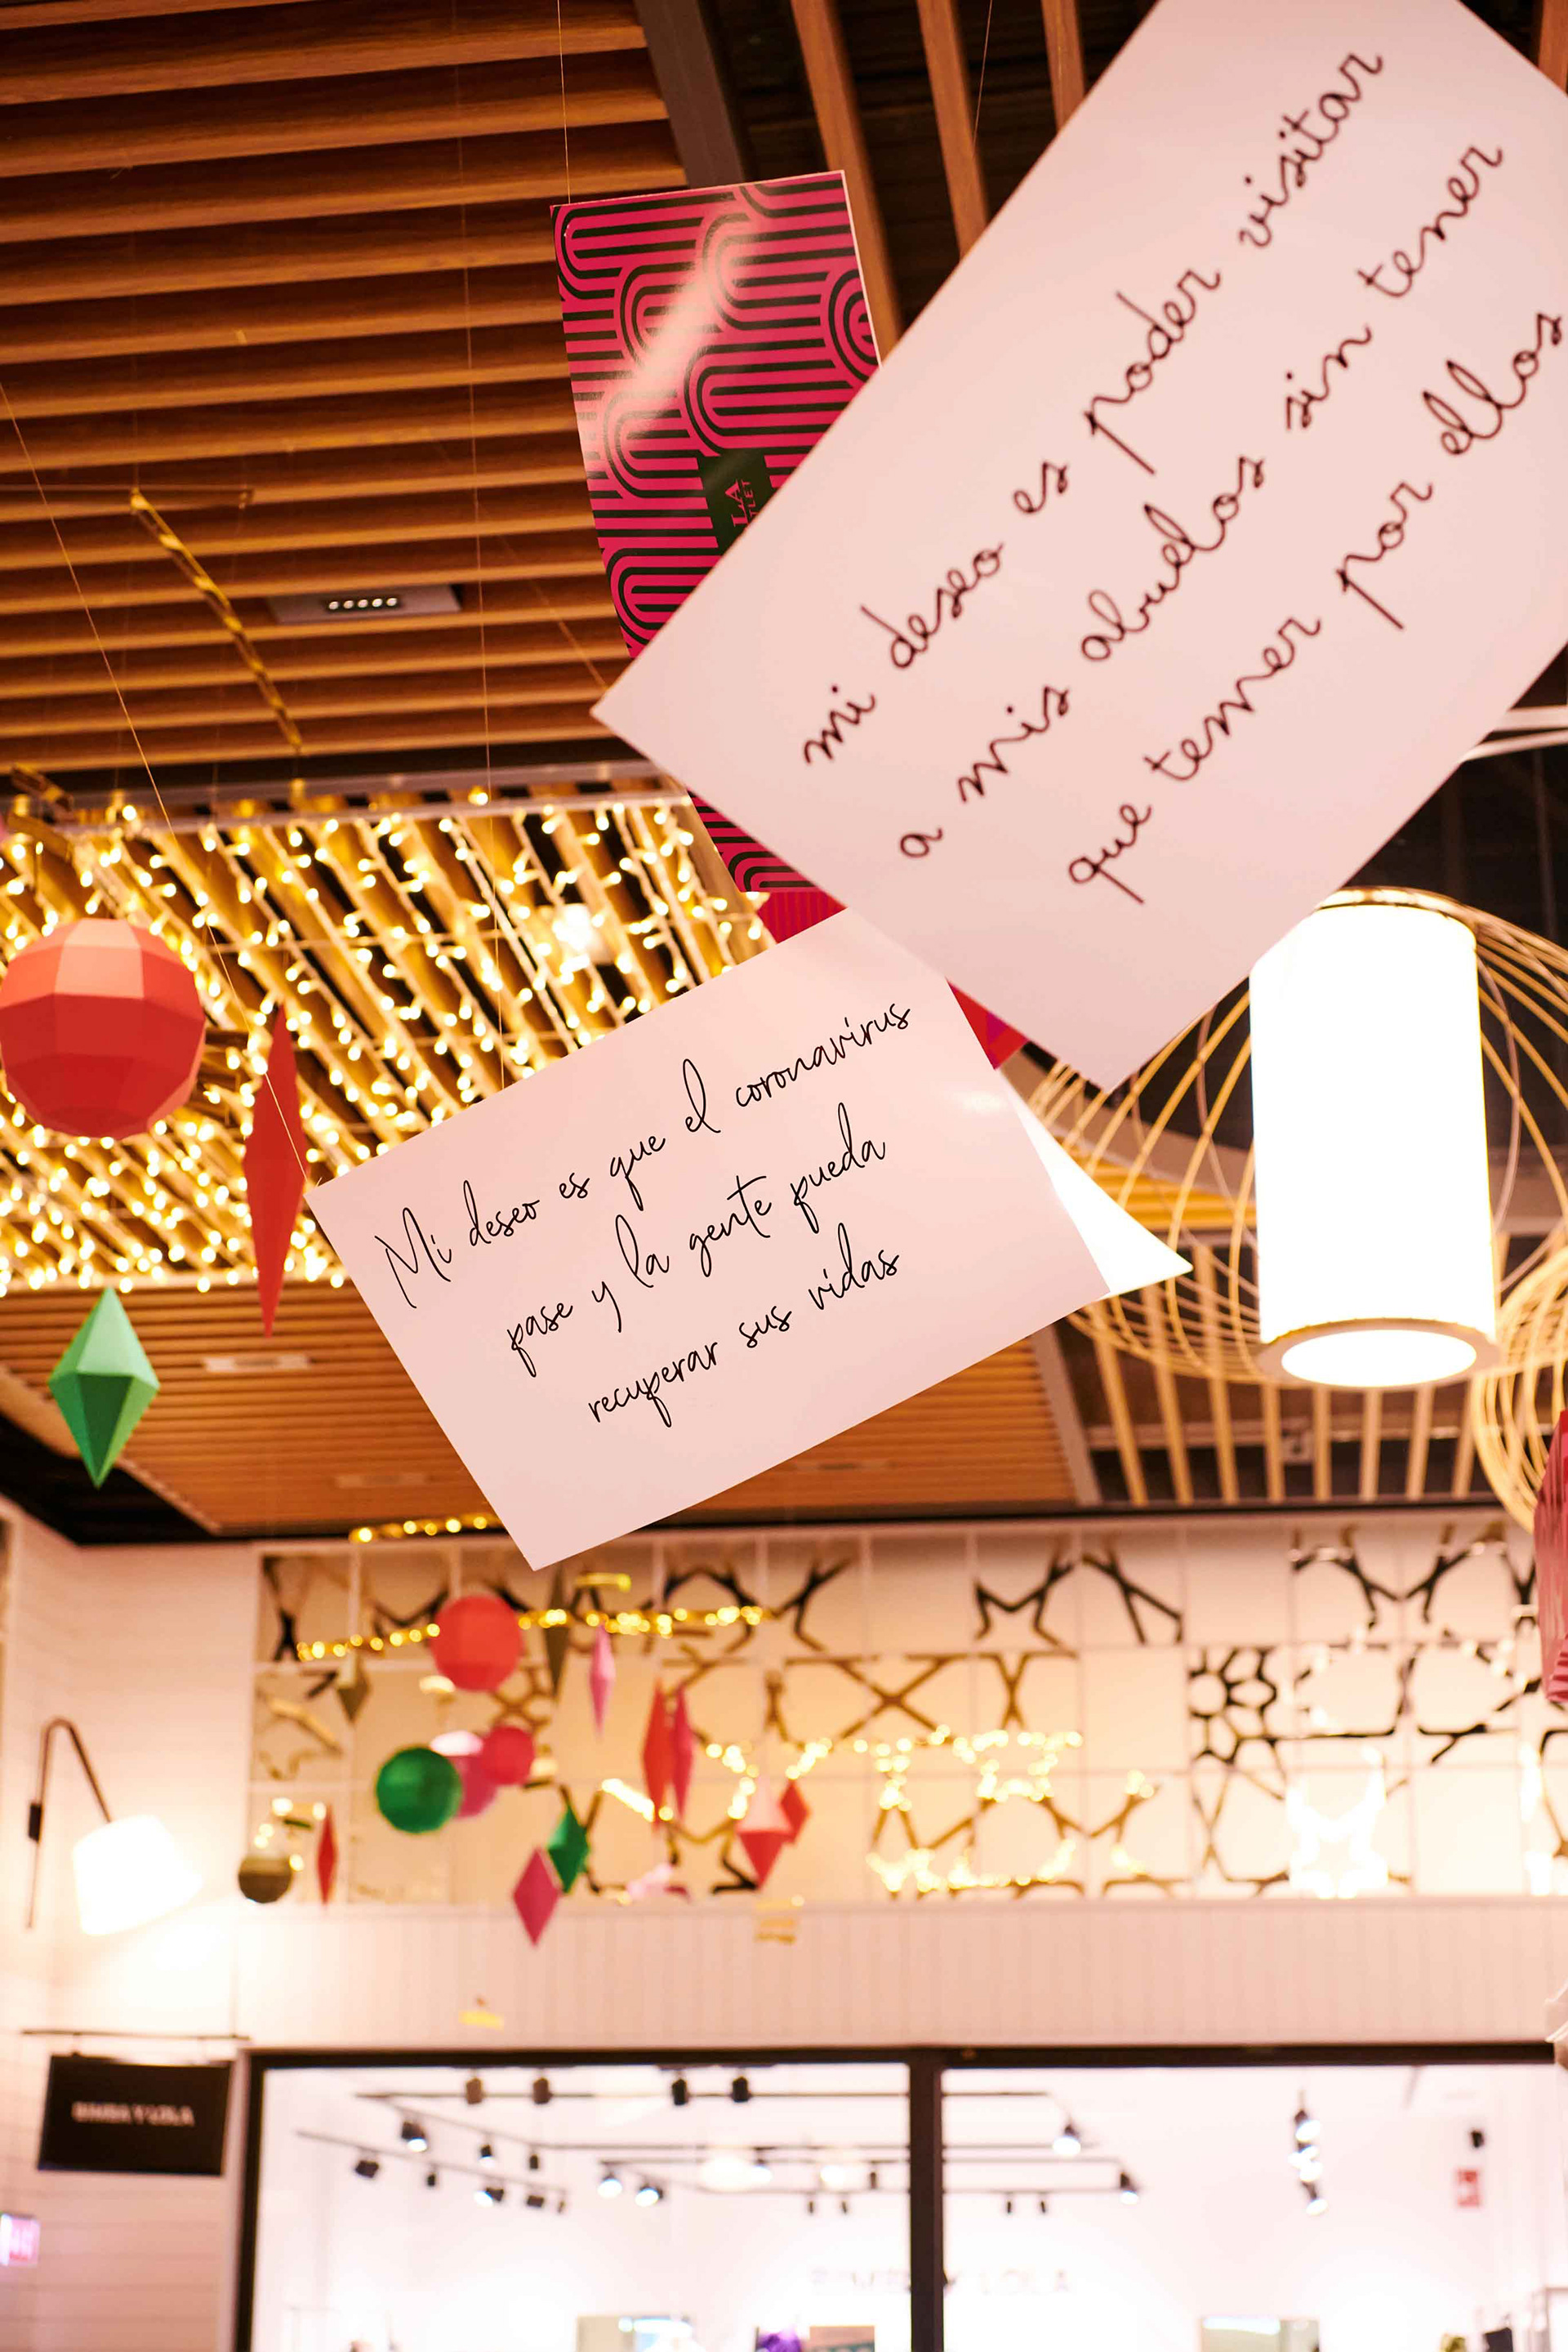 mi deseo es poder visitar
a mis abuelos sin tener
que temer por ellos
Mi deseo es que el coronavirus
pase y la gente pueda
recuperar sus vidas
BIMBA Y LOLA